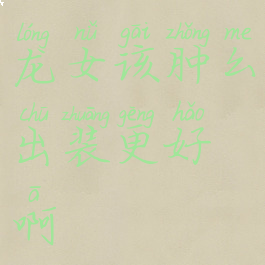 lóng nǚ gāi zhǒng me
龙女该肿么
chū zhuāng gèng hǎo
出装更好
ā
啊